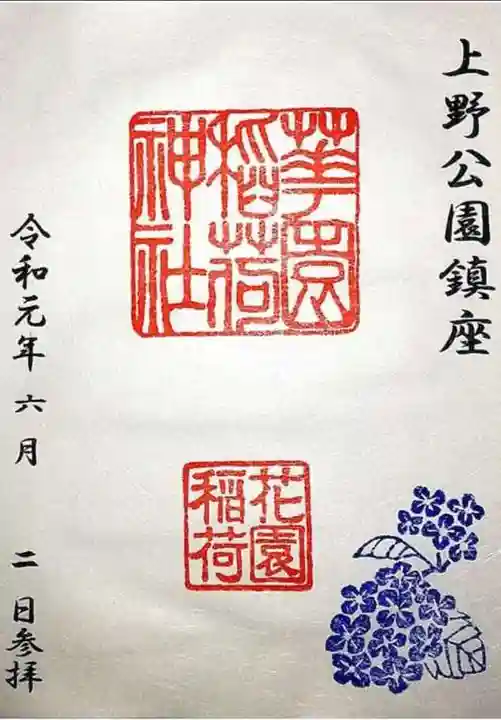 上野公園鎮座
華園
稲荷
神社
花園
稲荷
令和元年 六月 二 日参拝